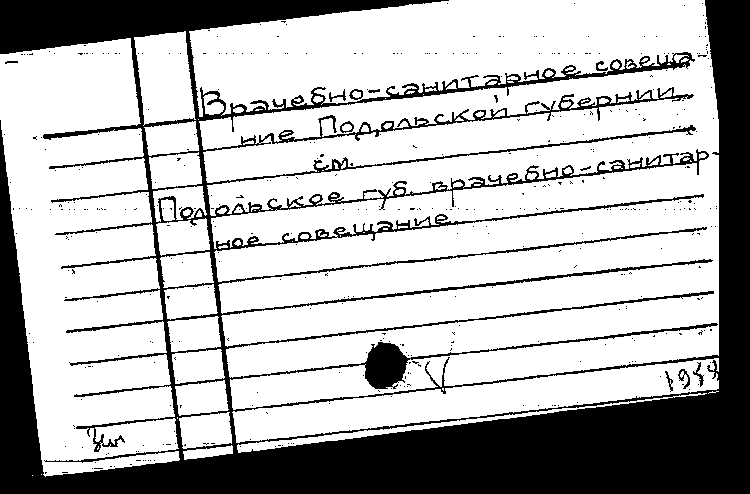 Врачебно-санитарное совеща-
ние Подольской губернии
см.
Подольское губ. врачебно-санитар-
ное совещание.